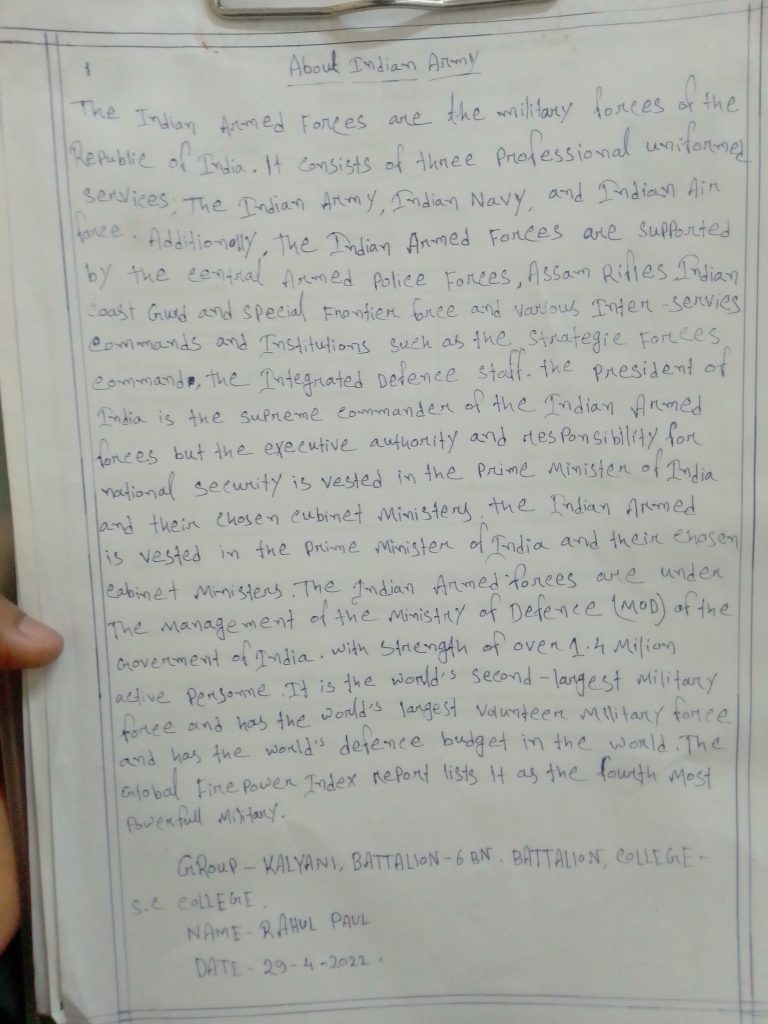 1
About Indian Army
The Indian Armed Forces are the military forces of the
Republic of India. It consists of three professional uniformed
services; The Indian Army, Indian Navy, and Indian Air
force. Additionally, the Indian Armed Forces are supported
by the central Armed police Forces, Assam Rifles, Indian
Coast Gurd and special Frontier force and various Inter-servies
Commands and Institutions such as the Strategic Forces
command, the Integrated Defence staff. the president of
India is the supreme commander of the Indian Armed
forces but the executive authority and responsibility for
national security is vested in the prime Minister of India
and their chosen cubinet Ministers, the Indian Armed
is vested in the prime Minister of India and their chosen
cabinet Ministers. The Indian Armed forces are under
The management of the Ministry of Defence (MOD) of the
Goverment of India. with Strength of over 1.4 Milion
active personne. It is the world's second-largest military
force and has the world's largest volunteer Military force
and has the world's defence budget in the world. The
Global Fire power Index report lists it as the fourth most
Powerfull Military.
GROUP - KALYANI, BATTALION - 6 BN. BATTALION, COLLEGE -
S.C COLLEGE,
NAME - RAHUL PAUL
DATE - 29-4-2022.